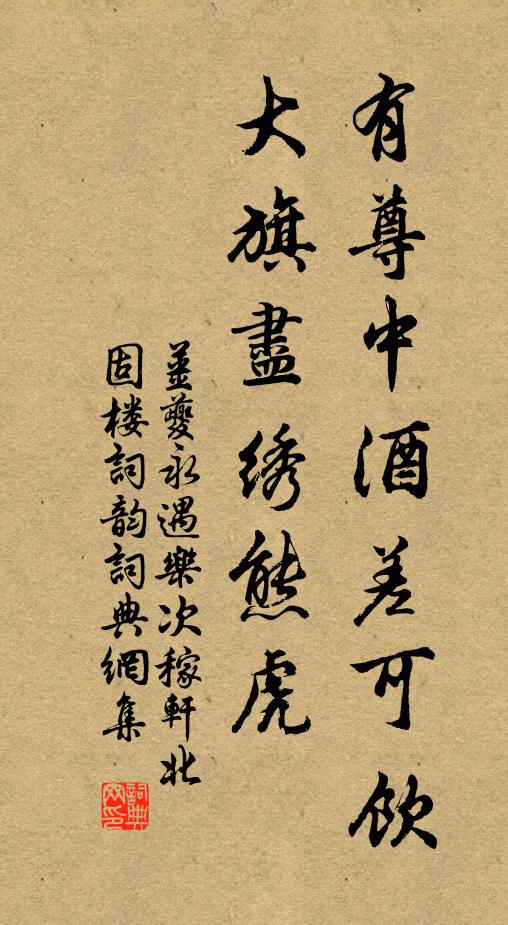 有尊中酒差可飲
大旗盡绣熊虎
姜夔永遇樂次稼軒北
固楼詞韵詞典網集
詞典
网印